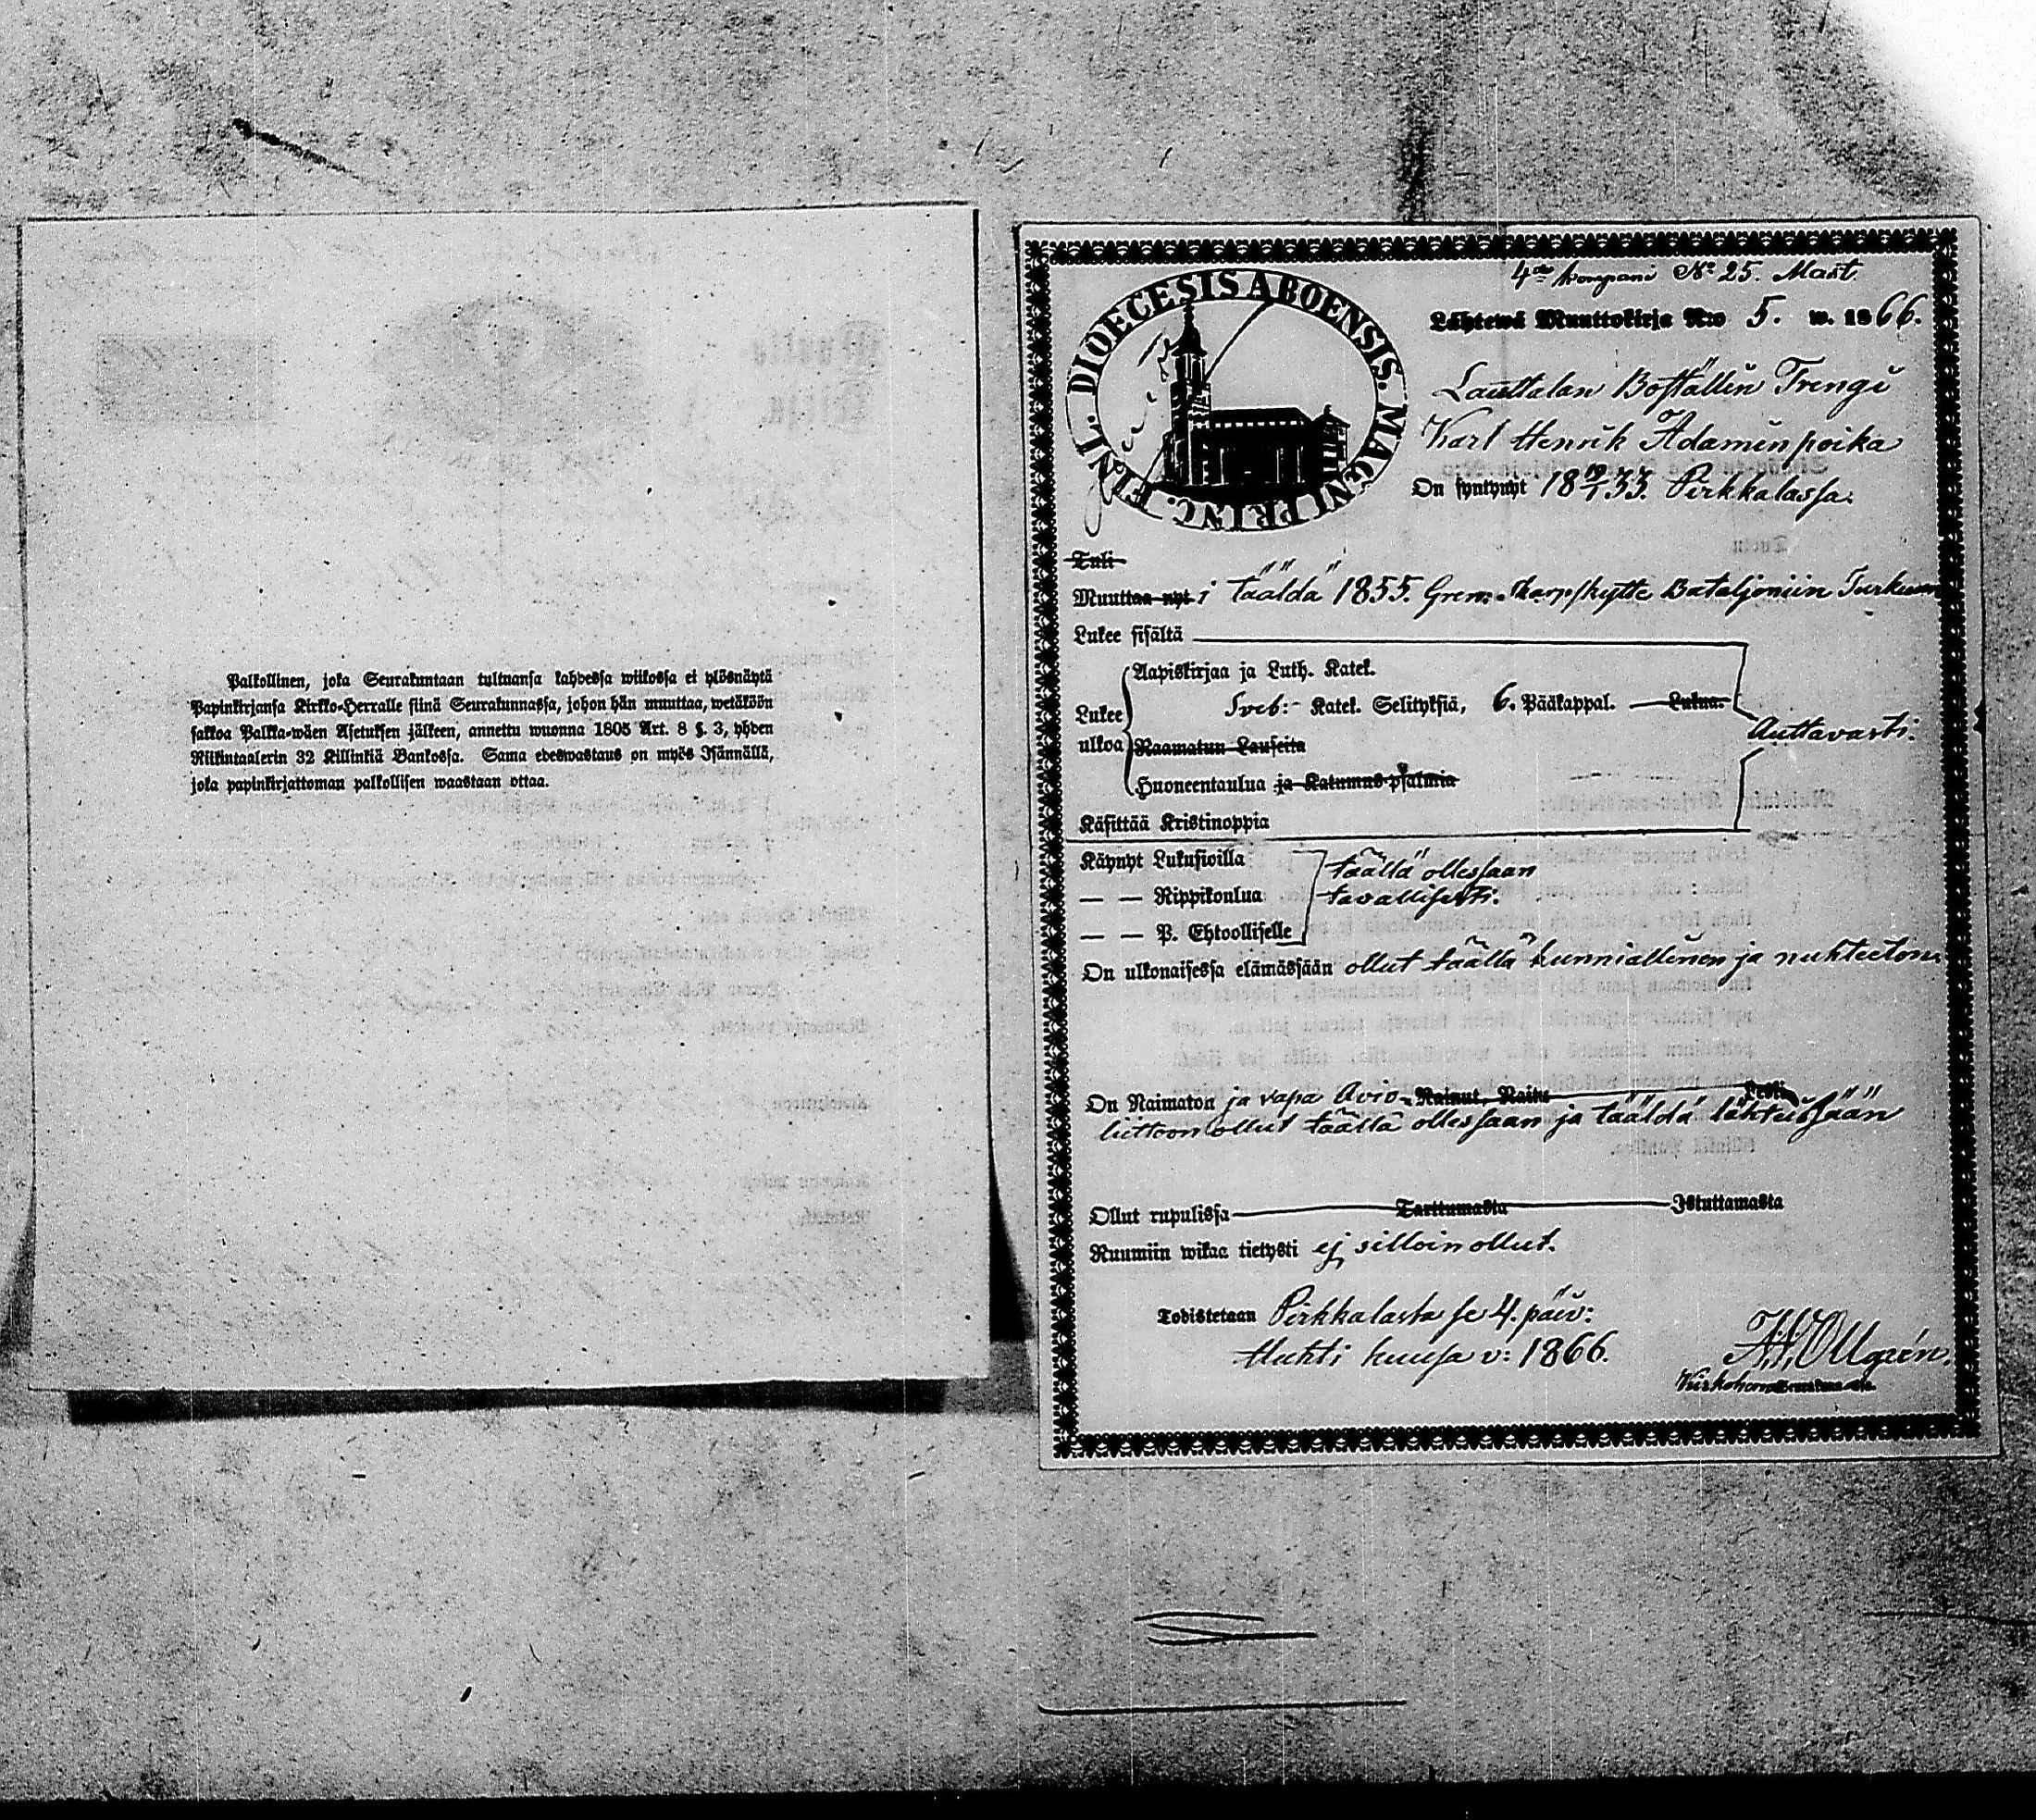 Palkollinen, joka Seurakuntaan tultuansa kahdessa wiikossa ei ylösnäytä
Papinkirjansa Kirkko-Herralle siinä Seurakunnassa, johon hän muuttaa, wetäköön
sakkoa Palkka-wäen Asetuksen jälkeen, annettu wuonna 1805 Art. 8 §. 3, yhden
Riikintaalerin 32 Killinkiä Bankossa. Sama edeswastaus on myös Isännällä,
joka papinkirjattoman palkollisen waastaan ottaa.
4de kompani No 25. Mast
DIOECESIS ABOENSIS. MAGNI PRINC. FINL.
Lähtewä Muuttokirja N:o 5. w. 1866.
Lauttalan Boställin Trengi
Karl Henrik Adamin poika
On syntynyt 18 19/1 33. Pirkkalassa.
Tuli
Muuttaa nyt i täältä 1855. Gren. Skarpskytte Bataljoniin Turkuun
Lukee sisältä
Lukee ulkoa
Aapiskirjaa ja Luth. Katek.
Sveb:- Katek. Selityksiä, 6. Pääkappal. Lukua.
Auttavasti.
Raamatun Lauseita
Huoneentaulua ja Katumus-psalmia
Käsittää Kristinoppia
Käynyt Lukusioilla täällä ollessaan
— — Rippikoulua tavallisesti.
— — P. Ehtoolliselle
On ulkonaisessa elämässään ollut täällä kunniallinen ja nuhteeton.
On Naimaton ja vapa Avio- Nainut, Naitu Leski
liittoon ollut täällä ollessaan ja täältä lähteissään
Ollut rupulissa Tarttumasta Istuttamasta
Ruumiin wikaa tietysti ej silloin ollut.
Todistetaan Pirkkalasta se 4. päiv:
Huhti kuusa v: 1866.
Ollgrén.